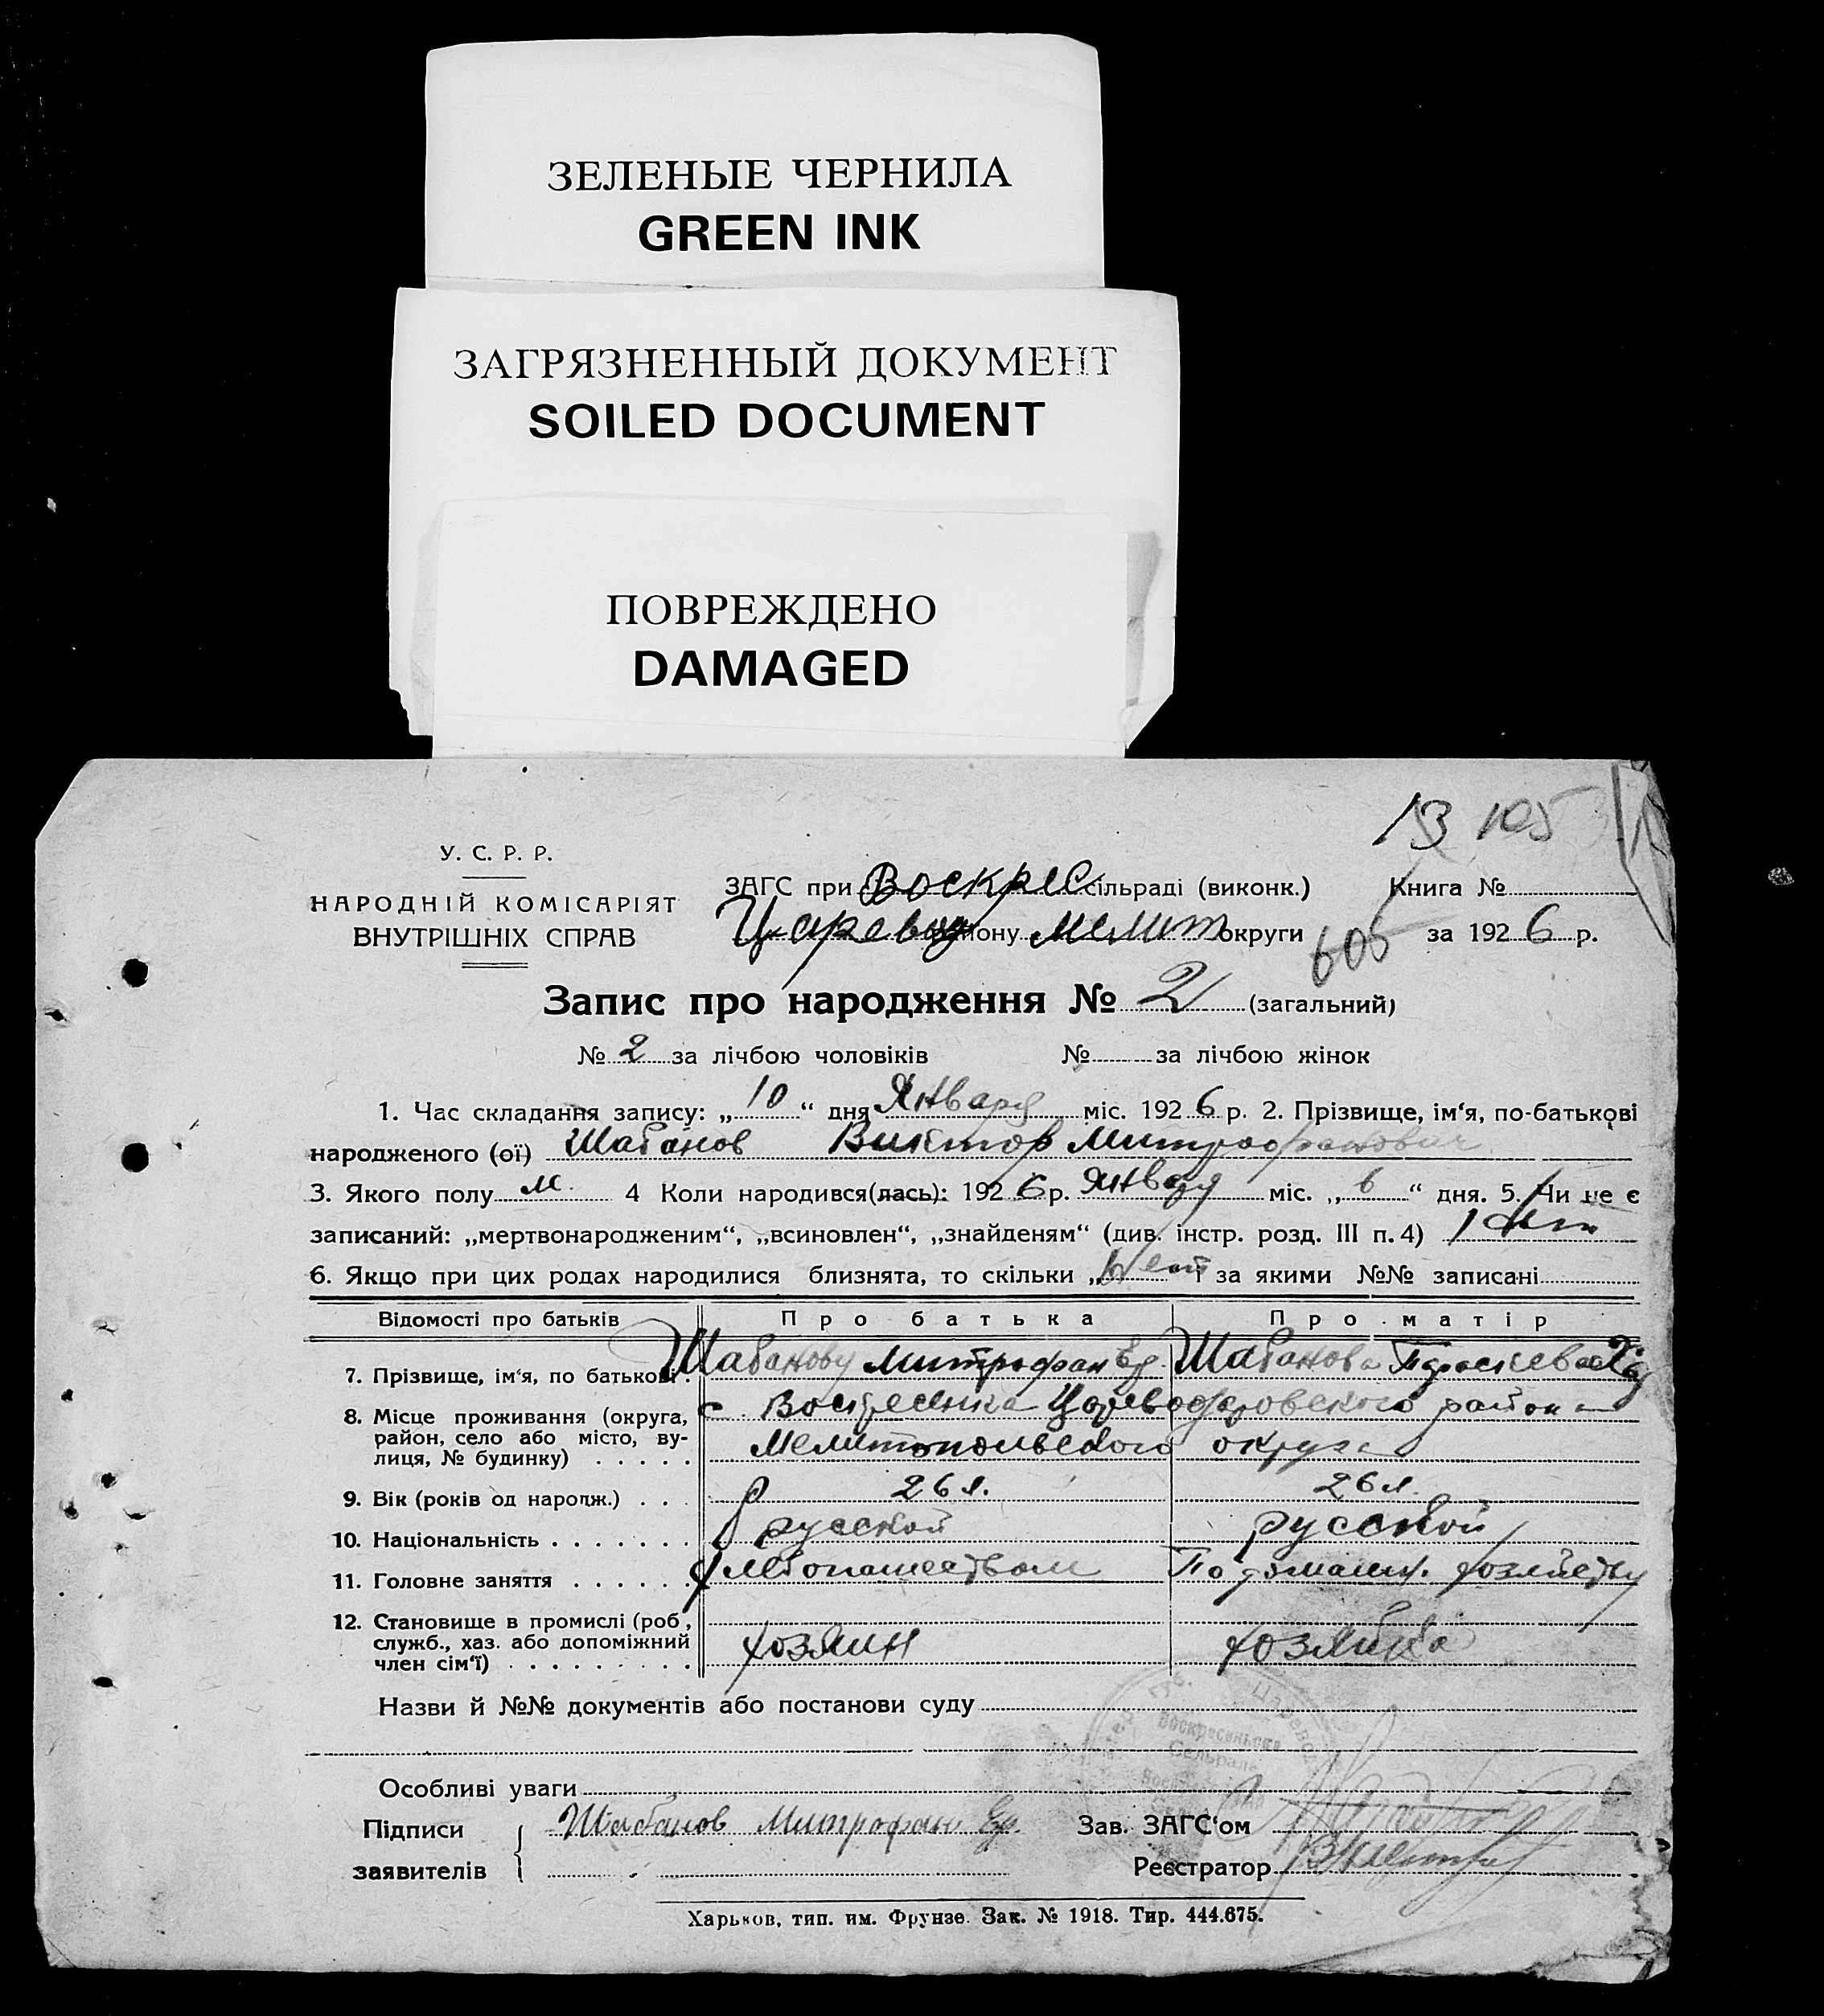 ЗЕЛЕНЫЕ ЧЕРНИЛА
GREEN INK
ЗАГРЯЗНЕННЫЙ ДОКУМЕНТ
SOILED DOCUMENT
ПОВРЕЖДЕНО
DAMAGED
13 105
У. С. Р. Р.
НАРОДНІЙ КОМІСАРІЯТ
ВНУТРІШНІХ СПРАВ
ЗАГС при Воскрес сільраді (виконк.) Книга №
Царевод району Мелит округи 605 за 1926 р.
Запис про народження № 2 (загальний)
№ 2 за лічбою чоловіків № за лічбою жінок
1. Час складання запису: „10“ дня Января міс. 1926 р. 2. Прізвище, ім‘я, по-батькові
народженого (ої) Шабанов Виктор Митрофанович
3. Якого полу м. 4 Коли народився(лась): 1926 р. Января міс. „6“ дня. 5. Чи не є
записаний: „мертвонародженим“, „всиновлен“, „знайденям“ (див. інстр. розд. III п. 4) Нет
6. Якщо при цих родах народилися близнята, то скільки „Нет і за якими №№ записані
Відомості про батьків Про батька Про матір
7. Прізвище, ім‘я, по батькові. Шабанову Митрофан Ег. Шабанова Параскева
8. Місце проживання (округа, с. Воскресенка Цареводаровского района
район, село або місто, ву-
лиця, № будинку) Мелитопольского округа
9. Вік (років од народж.) 26 л. 26 л.
10. Національність русской русской
11. Головне заняття хлебопашеством По домашн. хозяйству
12. Становище в промислі (роб.,
служб., хаз. або допоміжний хозяин хозяйка
член сім‘ї)
Назви й №№ документів або постанови суду
Воскресенська
Сельрада
Особливі уваги
Підписи Шабанов Митрофан Ег. Зав. ЗАГС‘ом
заявителів Реєстратор
Харьков, тип. им. Фрунзе. Зак. № 1918. Тир. 444.675.